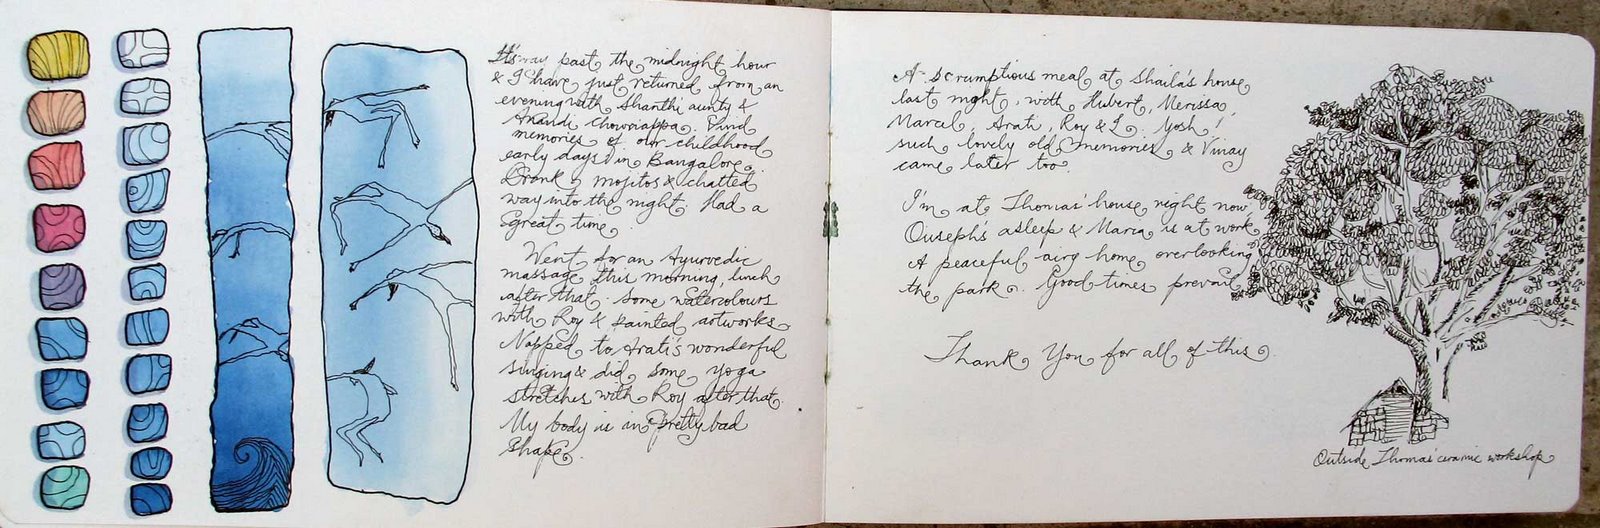 It's way past the midnight hour
& I have just returned from an
evening with Shanthi aunty &
Anandi Chowriappa. Vivid
memories of our childhood
early days in Bangalore.
Drank mojitos & chatted
way into the night. Had a
great time.
Went for an Ayurvedic
massage this morning, lunch
after that. Some watercolours
with Roy & painted artworks.
Napped to Arati's wonderful
singing & did some yoga
stretches with Roy after that.
My body is in pretty bad
shape.
A scrumptious meal at Shaila's house
last night, with Hubert, Merissa,
Marcel, Arati, Roy & I. Yosh!
such lovely old memories, & Vinay
came later too.
I'm at Thomas' house right now,
Ouseph's asleep & Marea is at work.
A peaceful airy home overlooking
the park. Good times prevail.
Thank You for all of this.
Outside Thomas' ceramic workshop